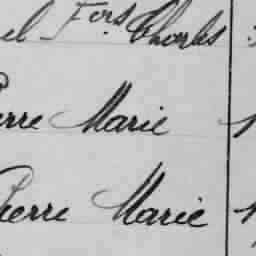 el F.ois Charles
erre Marie
ierre Marie